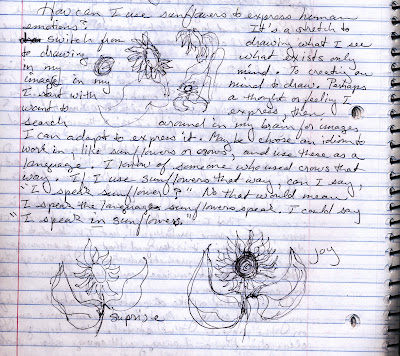 How can I use sunflowers to express human
emotions? It's a stretch to
switch from drawing what I see
to drawing what exists only
in my mind. To creative an
image in my mind to draw. Perhaps
I start with a thought or feeling I
want to express, then
search around in my brain for images
I can adapt to express it. Maybe choose an idiom to
work in, like sunflowers or crows, and use these as a
language. I know of someone who used crows that
way. If I use sunflowers that way, can I say,
"I speak sunflower?" No that would mean
I speak the language sunflowers speak. I could say
"I speak in sunflowers."
joy
suprise